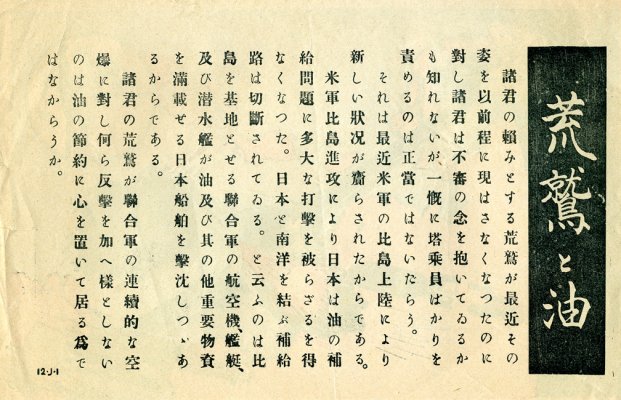 荒鷲と油
諸君の賴みとする荒鷲が最近その
姿を以前程に現はさなくなつたのに
對し諸君は不審の念を抱いてゐるか
も知れないが、一慨に塔乘員ばかりを
責めるのは正當ではないだらう。
それは最近米軍の比島上陸により
新しい狀況が齎らされたからである。
米軍比島進攻により日本は油の補
給問題に多大な打擊を被らざるを得
なくなつた。日本と南洋を結ぶ補給
路は切斷されてゐる。と云ふのは比
島を基地とせる聯合軍の航空機、艦艇、
及び潜水艦が油及び其の他重要物資
を滿載せる日本船舶を擊沈しつゝあ
るからである。
諸君の荒鷲が聯合軍の連續的な空
爆に對し何ら反擊を加へ樣としない
のは油の節約に心を置いて居る爲で
はなからうか。
12-J-1